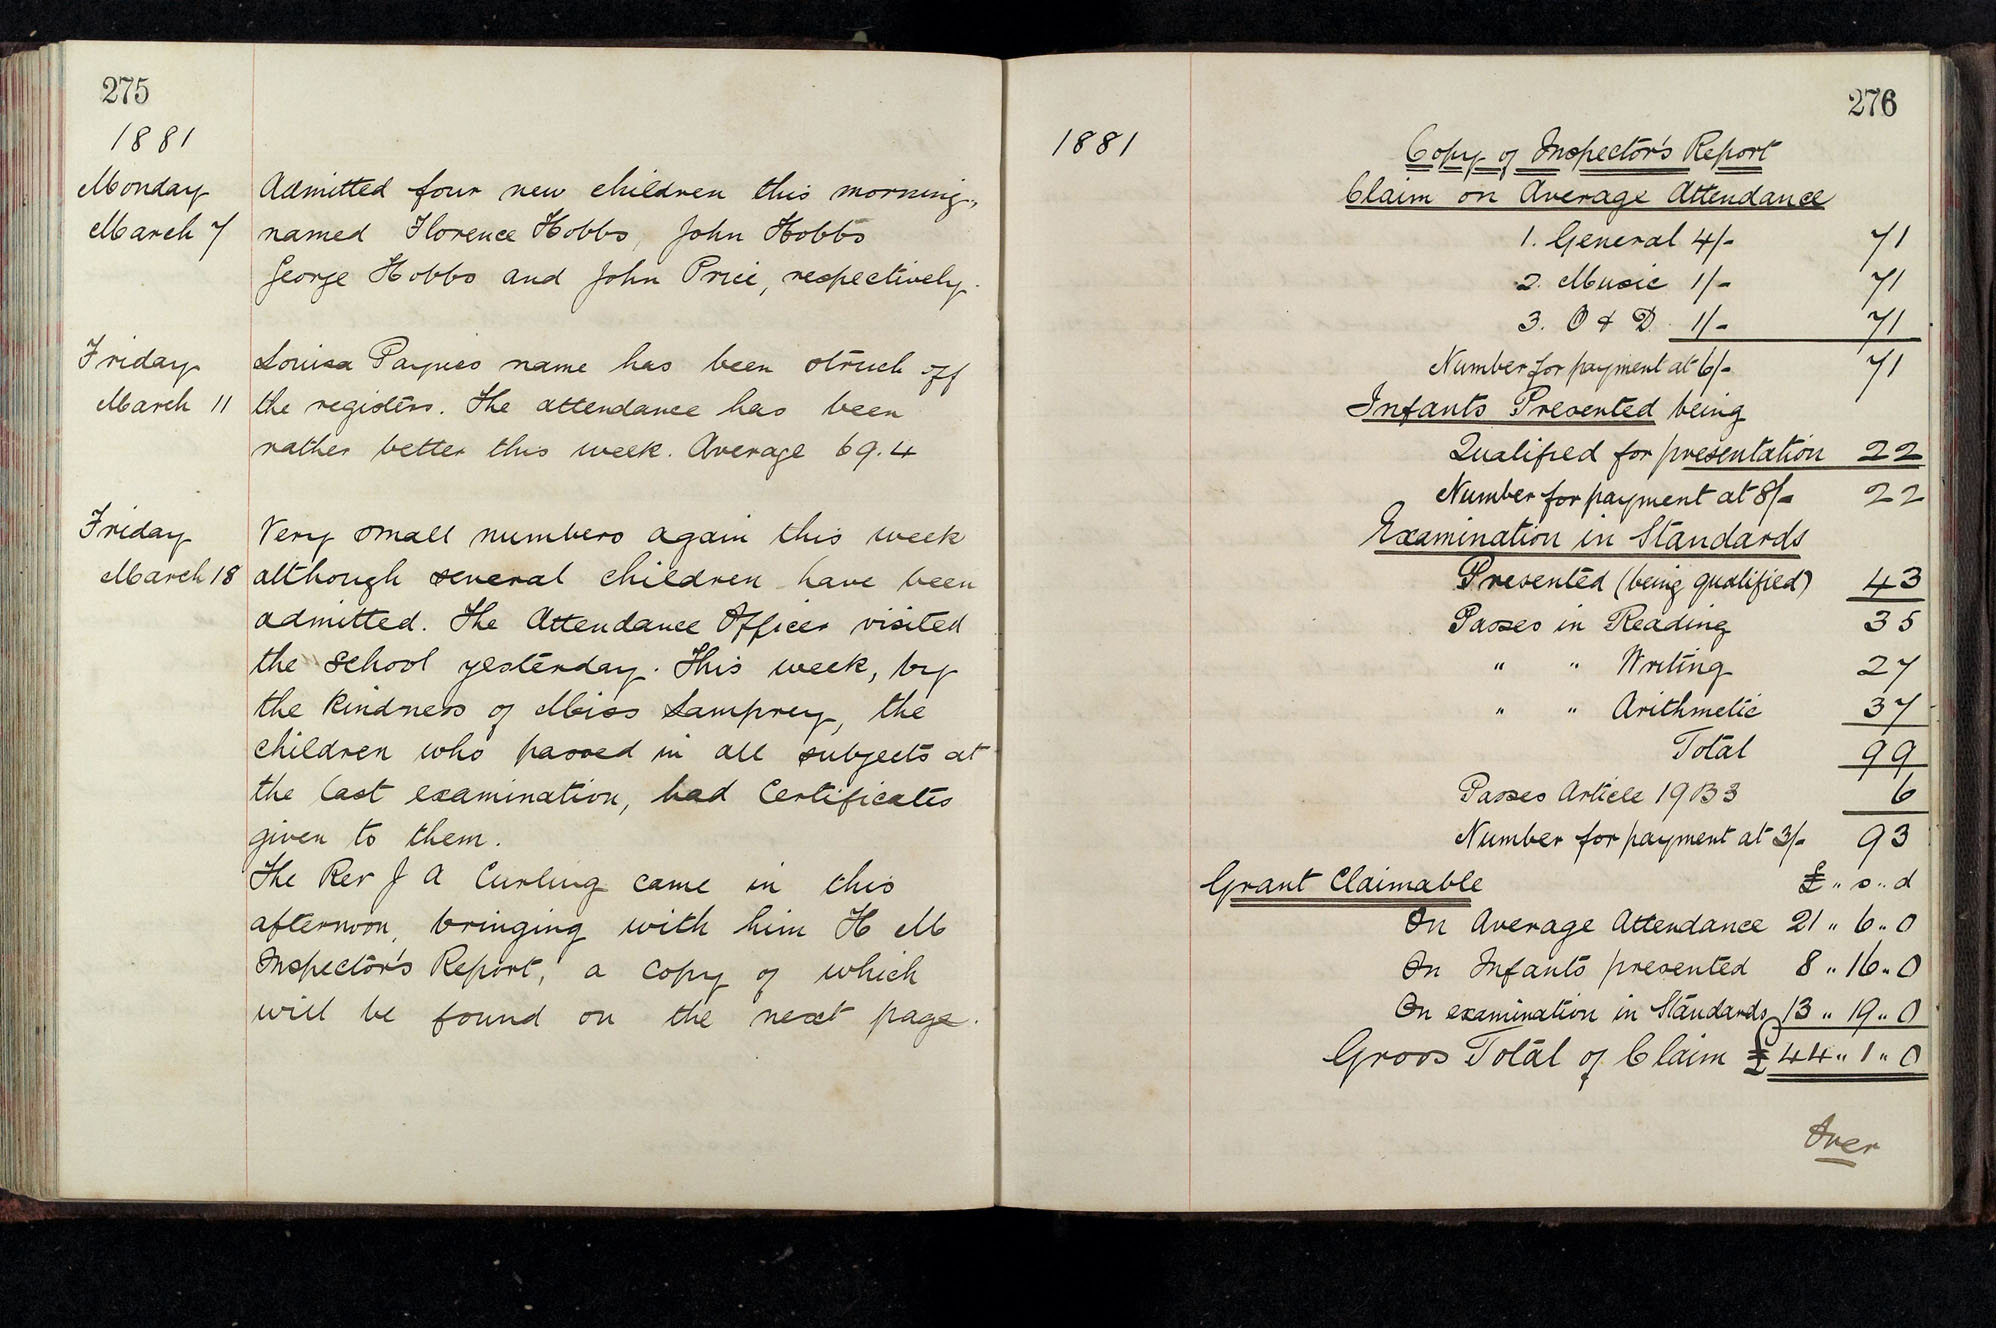 275
1881
Monday
March 7
Admitted four new children this morning,
named Florence Hobbs, John Hobbs
George Hobbs and John Price, respectively.
Friday
March 11
Louisa Paynes name has been struck off
the registers. The attendance has been
rather better this week. Average 69.4
Friday
March 18
Very small numbers again this week
although several children have been
admitted. The Attendance Officer visited
the School yesterday. This week, by
the kindness of Miss Lamprey, the
children who passed in all subjects at
the last examination, had Certificates
given to them.
The Rev J A Curling came in this
afternoon, bringing with him H M
Inspector's Report, a copy of which
will be found on the next page.
276
1881
Copy of Inspector's Report
Claim on Average Attendance
1. General 4/- 71
2. Music 1/- 71
3. O & D. 1/- 71
Number for payment at 6/- 71
Infants Presented being
Qualified for presentation 22
Number for payment at 8/- 22
Examination in Standards
Presented (being qualified) 43
Passes in Reading 35
" " Writing 27
" " Arithmetic 37
Total 99
Passes Article 19 B 3 6
Number for payment at 3/- 93
Grant Claimable £ " s " d
On Average Attendance 21 " 6 " 0
On Infants presented 8 " 16 " 0
On examination in Standards 13 " 19 " 0
Gross Total of Claim £ 44 " 1 " 0
Over